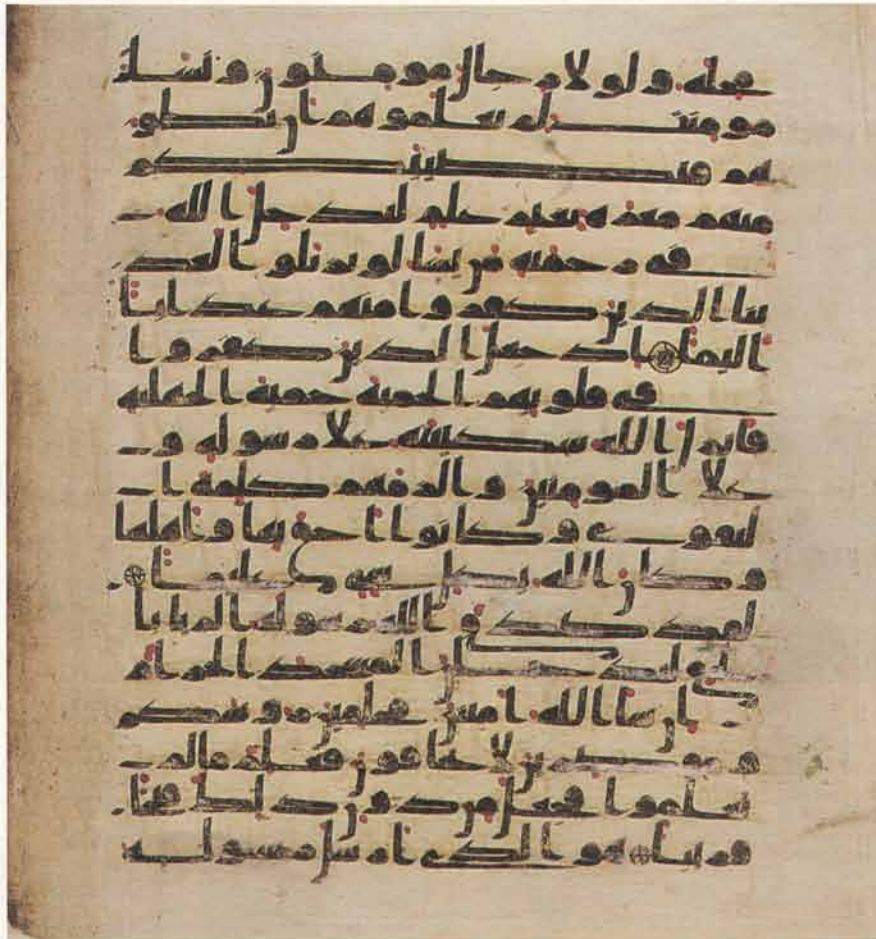 محله ولولا رجال مومنون ونسا
مومنت لم تعلموهم ان تطو
هم فتصيبكم
منهم معرة بغير علم ليدخل الله
في رحمته من يشا لو تزيلوا لعذ
بنا الذين كفروا منهم عذابا
اليما اذ جعل الذين كفروا
في قلوبهم الحمية حمية الجهلية
فانزل الله سكينته على رسوله و
على المومنين والزمهم كلمة ا
لتقوى وكانوا احق بها واهلها
وكان الله بكل شي عليما
لقد صدق الله رسوله الريا با
لحق لتدخلن المسجد الحرام
ان شا الله امنين محلقين روسكم
ومقصرين لا تخافون فعلم ما لم
تعلموا فجعل من دون ذلك فتحا
قريبا هو الذي ارسل رسوله